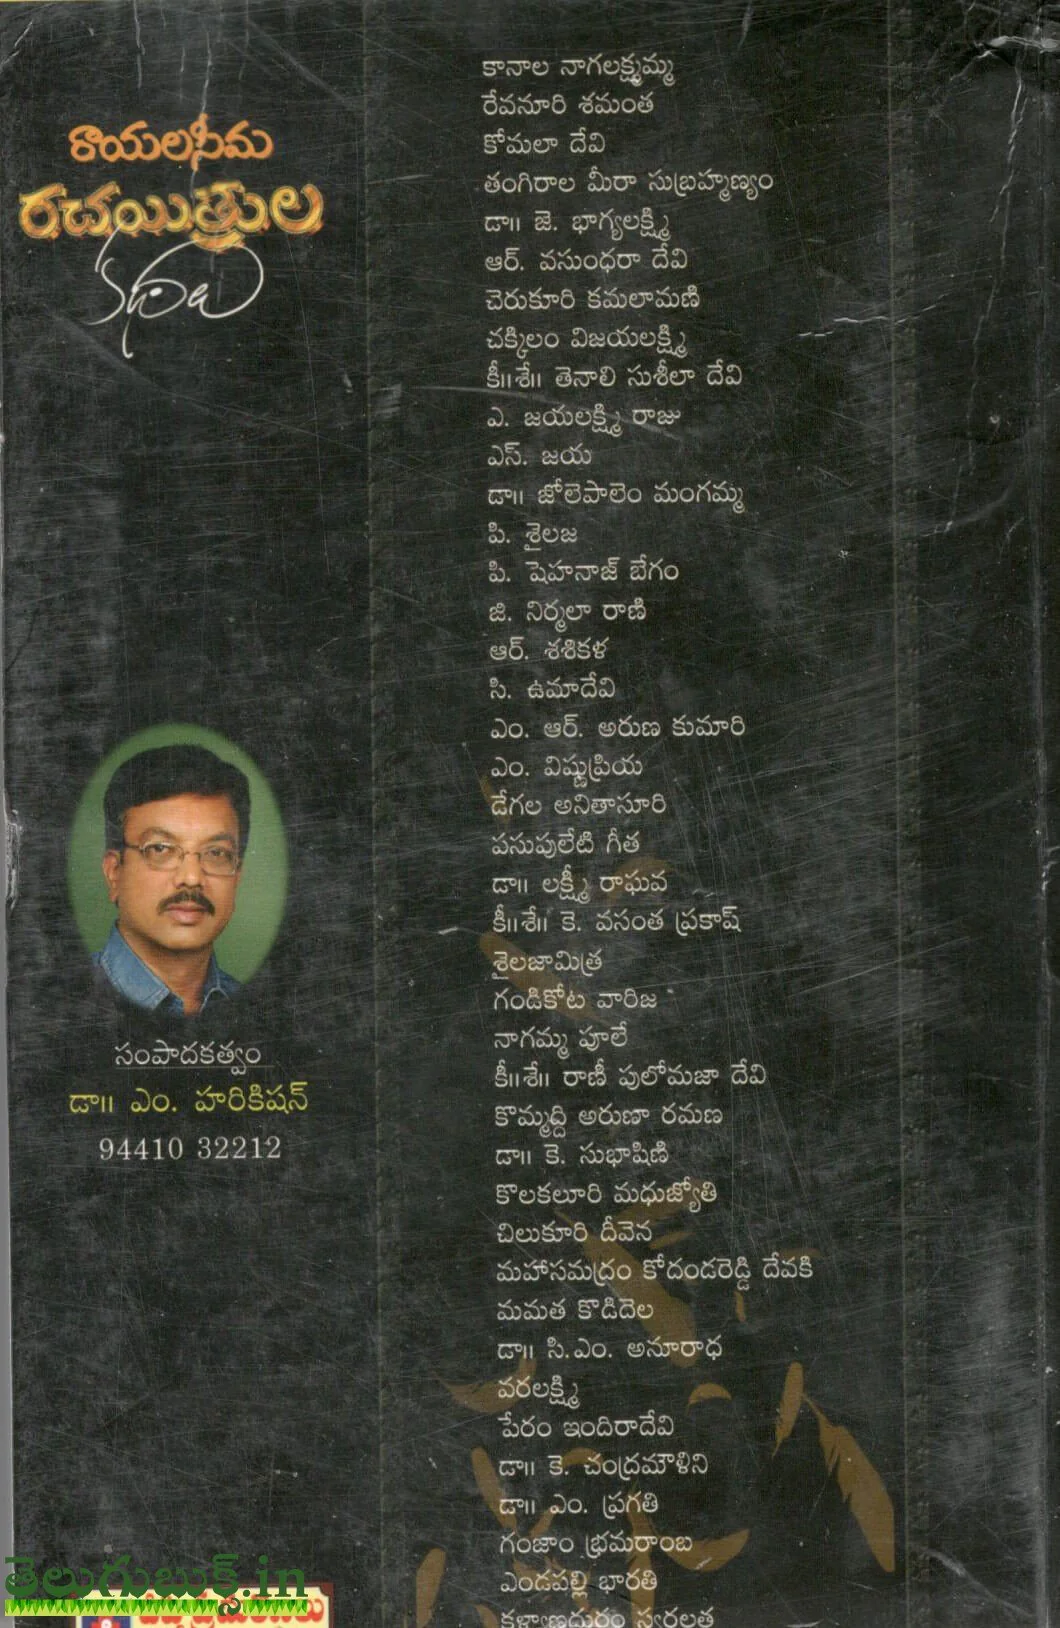 రాయలసీమ
రచయిత్రుల
కథలు
సంపాదకత్వం
డా॥ ఎం. హరికిషన్
94410 32212
కానాల నాగలక్ష్మమ్మ
రేవనూరి శమంత
కోమలా దేవి
తంగిరాల మీరా సుబ్రహ్మణ్యం
డా॥ జె. భాగ్యలక్ష్మి
ఆర్. వసుంధరా దేవి
చెరుకూరి కమలామణి
చక్కిలం విజయలక్ష్మి
కీ॥శే॥ తెనాలి సుశీలా దేవి
ఎ. జయలక్ష్మి రాజు
ఎస్. జయ
డా॥ జోలెపాలెం మంగమ్మ
పి. శైలజ
పి. షెహనాజ్ బేగం
జి. నిర్మలా రాణి
ఆర్. శశికళ
సి. ఉమాదేవి
ఎం. ఆర్. అరుణ కుమారి
ఎం. విష్ణుప్రియ
డేగల అనితాసూరి
పసుపులేటి గీత
డా॥ లక్ష్మీ రాఘవ
కీ॥శే॥ కె. వసంత ప్రకాష్
శైలజామిత్ర
గండికోట వారిజ
నాగమ్మ పూలే
కీ॥శే॥ రాణీ పులోమజా దేవి
కొమ్మద్ది అరుణా రమణ
డా॥ కె. సుభాషిణి
కొలకలూరి మధుజ్యోతి
చిలుకూరి దీవెన
మహాసముద్రం కోదండరెడ్డి దేవకి
మమత కొడిదెల
డా॥ సి.ఎం. అనూరాధ
వరలక్ష్మి
పేరం ఇందిరాదేవి
డా॥ కె. చంద్రమౌళిని
డా॥ ఎం. ప్రగతి
గంజాం భ్రమరాంబ
ఎండపల్లి భారతి
కళ్యాణదుర్గం స్వర్ణలత
తెలుగుబుక్స్.in